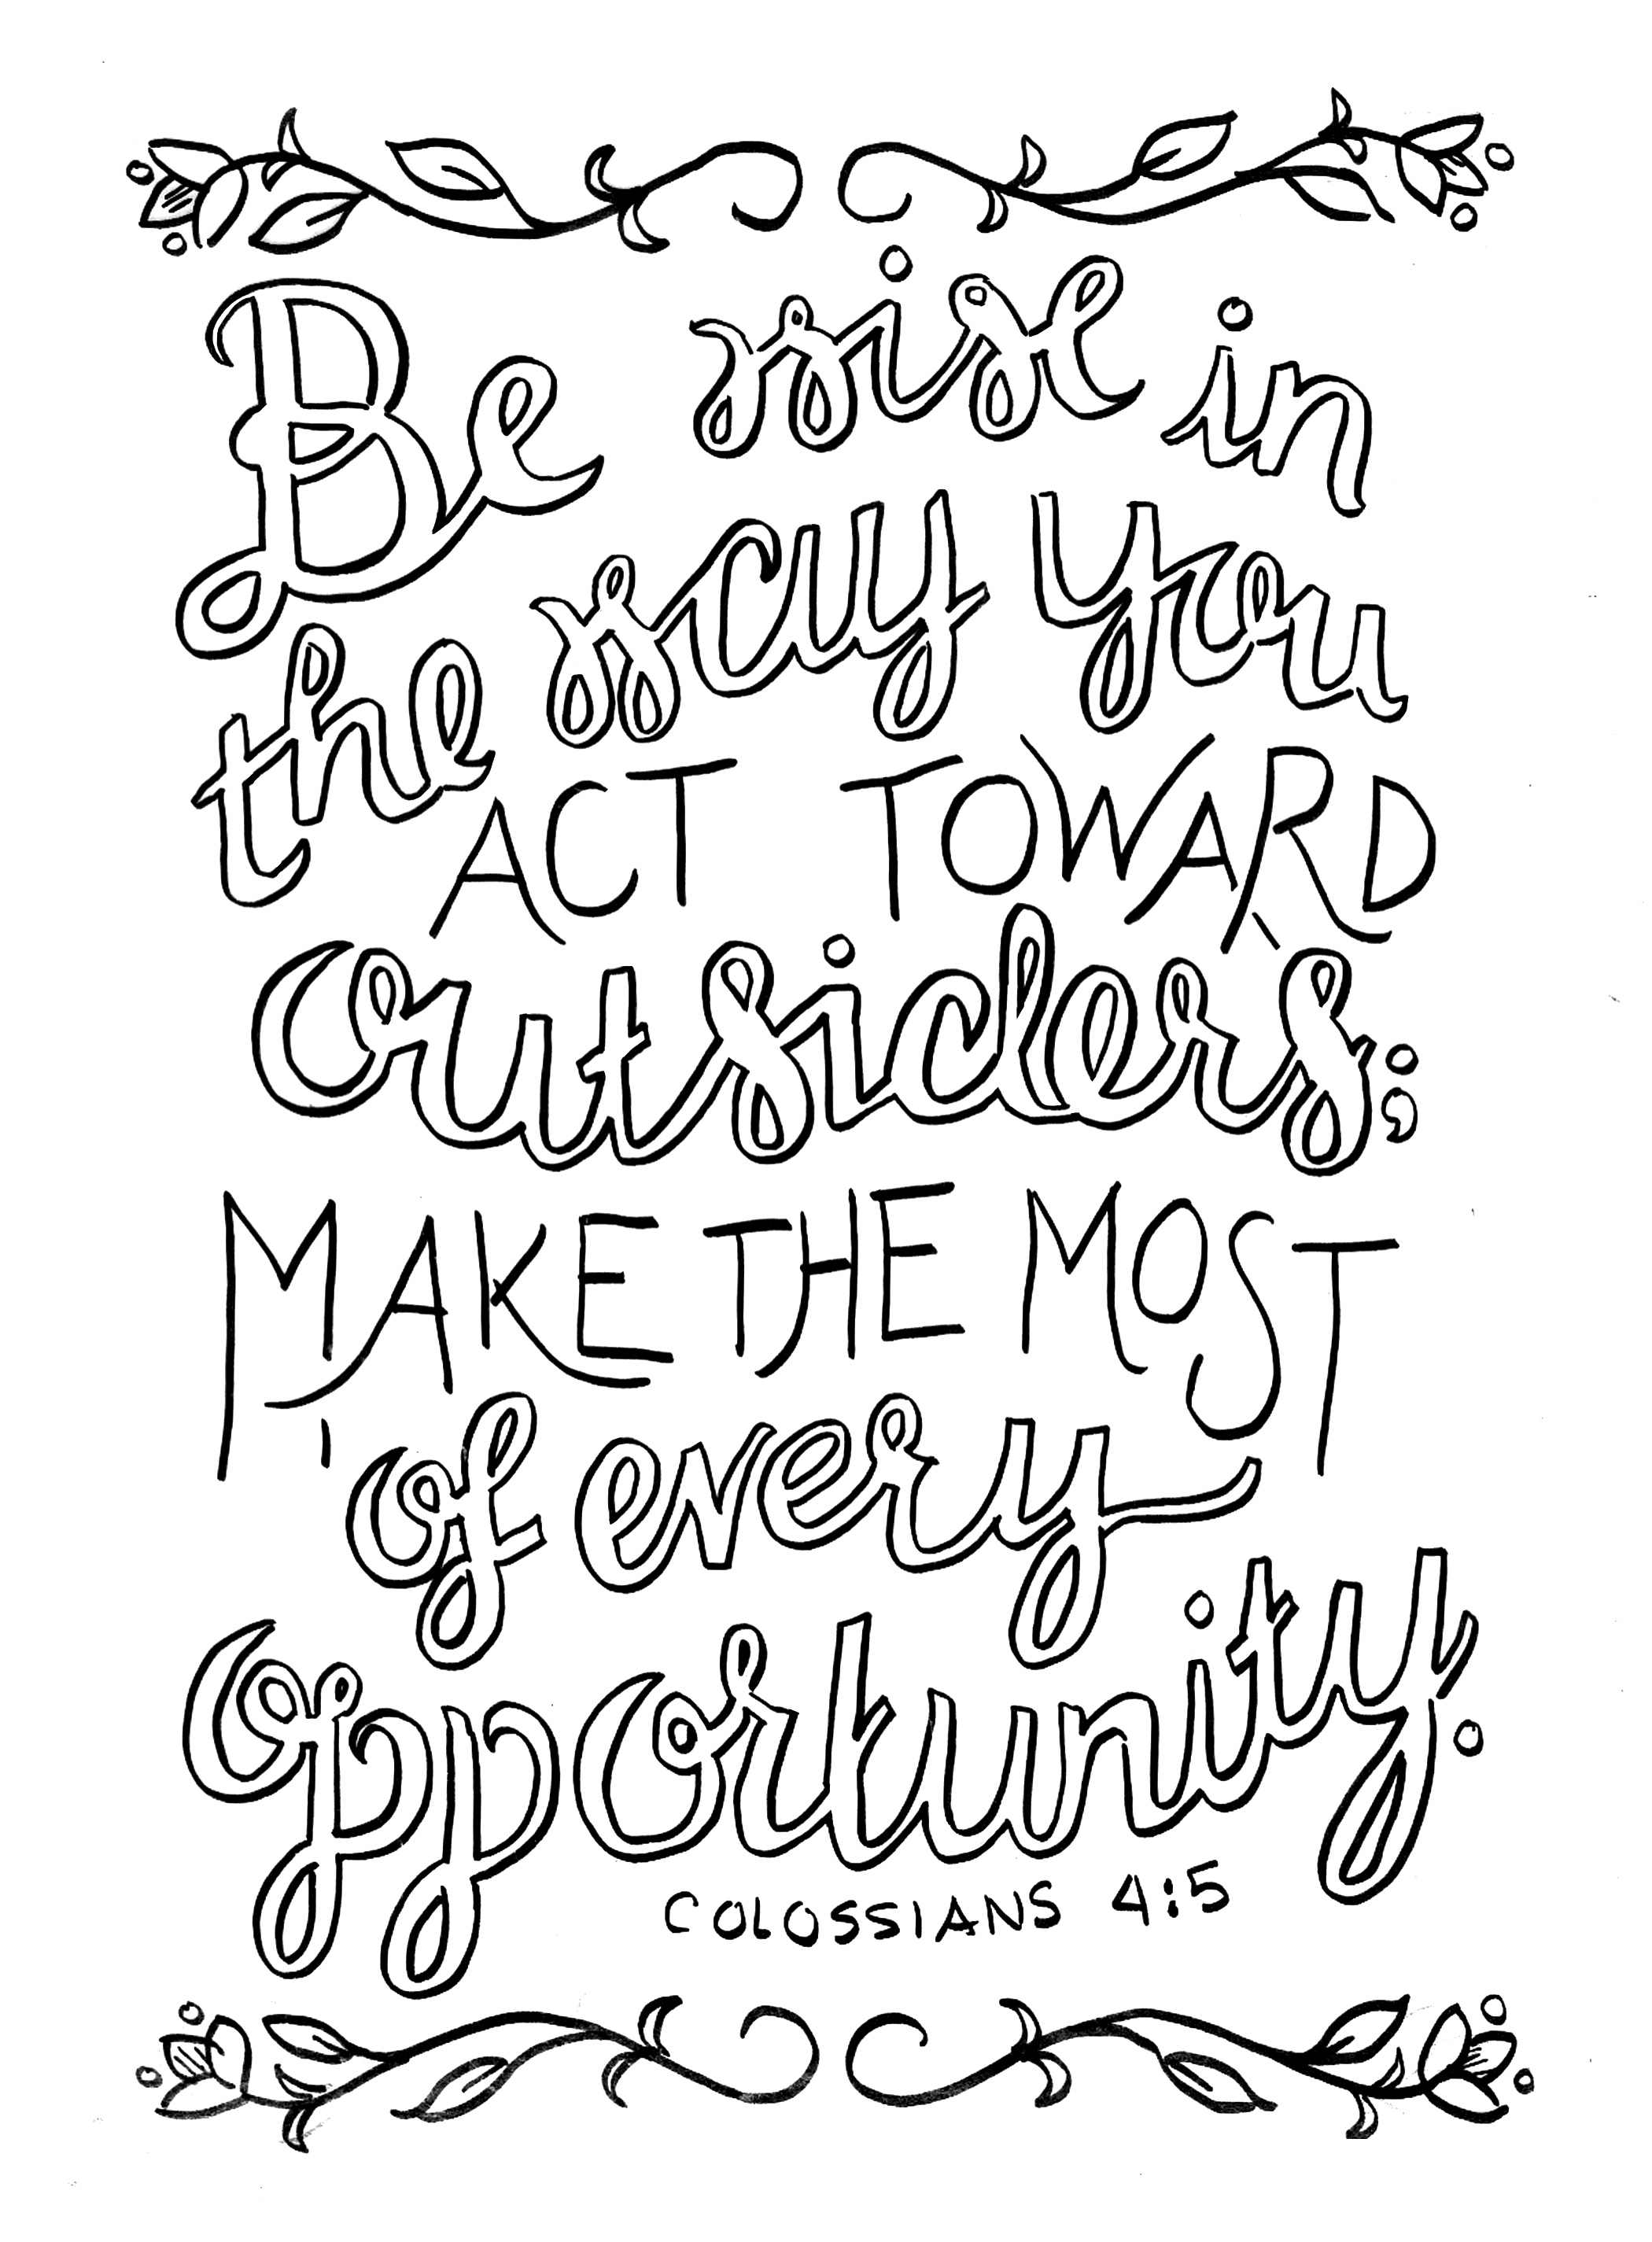 Be wise in
the way you
ACT TOWARD
outsiders;
MAKE THE MOST
of every
opportunity!
COLOSSIANS 4:5